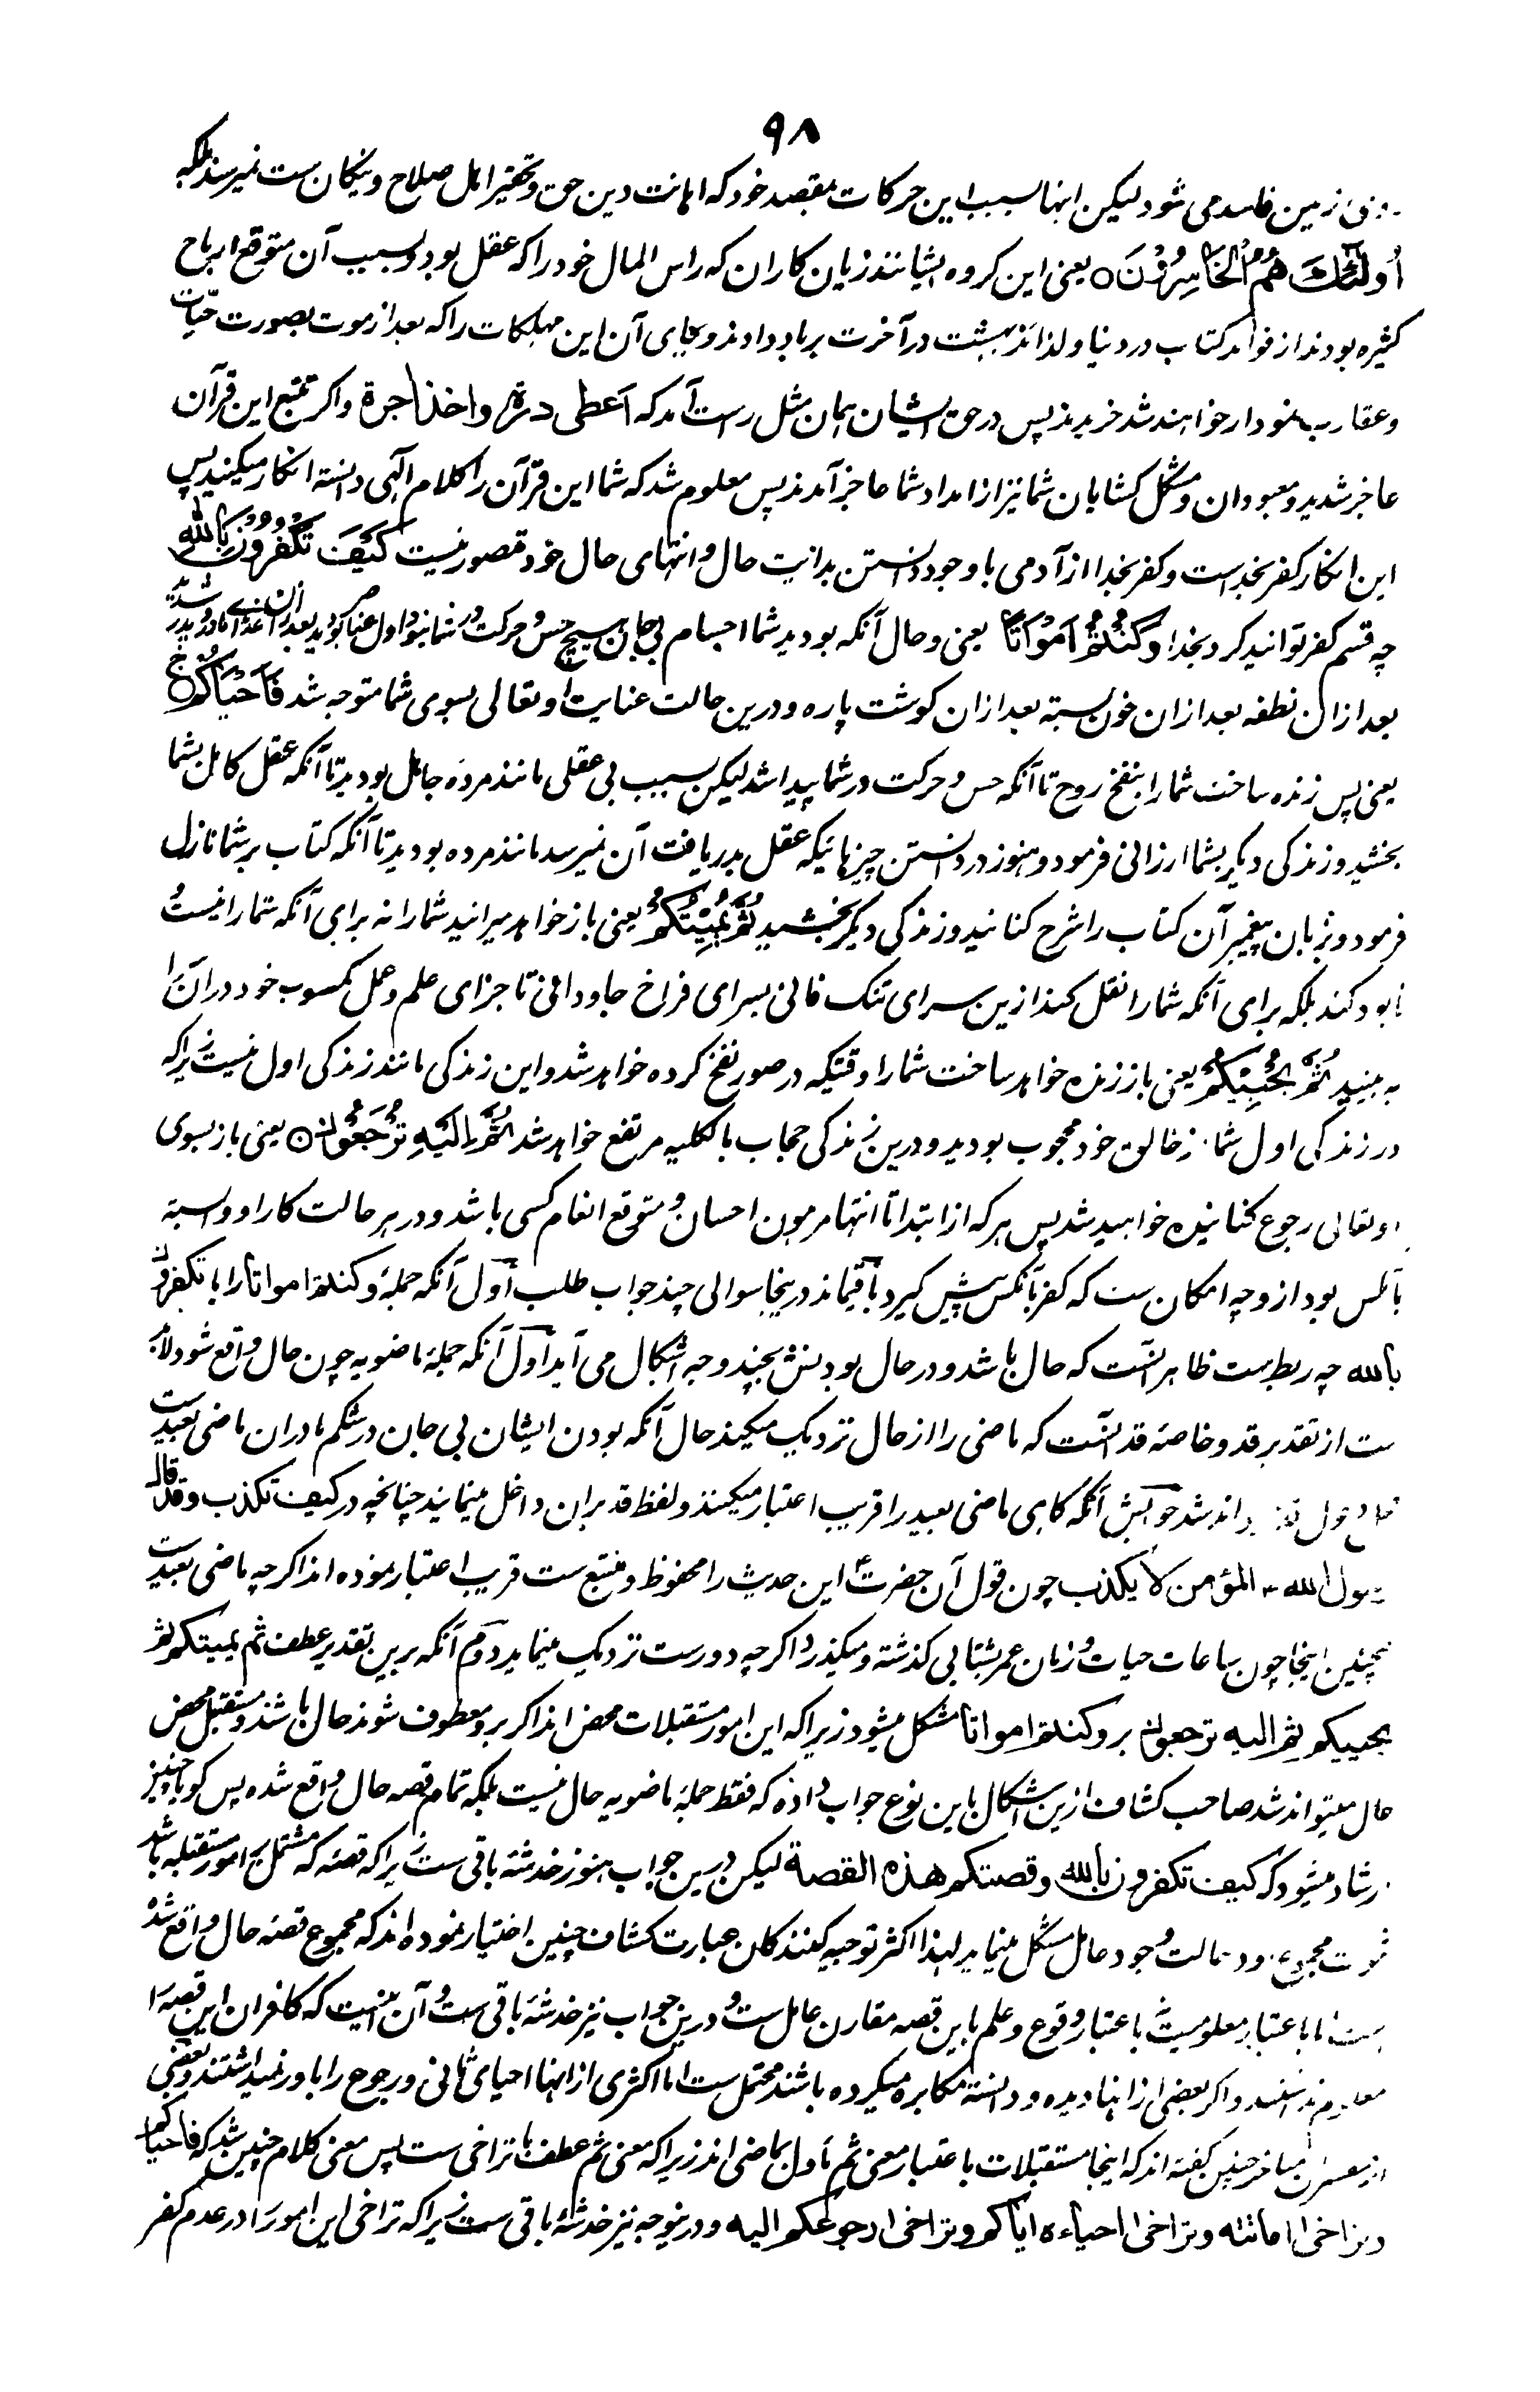 ۹۸
زمین فاسد می شود لیکن اینها بسبب این حرکات بمقصد خود که اهانت دین حق و تحقیر اهل صلاح و نیکان ست نمیرسند بلکه
أُولَٰئِكَ هُمُ الْخَاسِرُونَ ○ یعنی این کروه ایشانند زیان کاران که راس المال خود را که عقل بود و بسبب آن متوقع ارباح
کثیره بودند از فوائد کتاب در دنیا و لذائذ بهشت در آخرت برباد دادند و بجای آن این مهلکات را که بعد از موت بصورت حیّات
و عقارب نمودار خواهند شد خریدند پس در حق ایشان همان مثل راست آمد که اعطی درة واخذ اجرة و اکر تتبع این قرآن
عاجز شدید و معبودان و مشکل کشایان شما نیز از امداد شما عاجز آمدند پس معلوم شد که شما این قرآن را کلام الهی دانسته انکار میکنید پس
این انکار کفر بخداست و کفر بخدا از آدمی با وجود دانستن بدایت حال و انتهای حال خود متصور نیست كَيْفَ تَكْفُرُونَ بِاللَّهِ
چه قسم کفر توانید کرد بخدا وَكُنْتُمْ أَمْوَاتًا یعنی و حال آنکه بودید شما اجسام بی جان هیچ حس و حرکت در شما نبود اول عناصر بودید بعد ازان غذای مادر و پدر شدید
بعد ازان نطفه بعد ازان خون بسته بعد ازان کوشت پاره و درین حالت عنایت او تعالی بسوی شما متوجه شد فَأَحْيَاكُمْ ج
یعنی پس زنده ساخت شما را بنفخ روح تا آنکه حس و حرکت در شما پیدا شد لیکن بسبب بی عقلی مانند مرده جاهل بودید تا آنکه عقل کامل بشما
بخشید و زندکی دیکر بشما ارزانی فرمود و هنوز در دانستن چیزهائیکه عقل بدریافت آن نمیرسد مانند مرده بودید تا آنکه کتاب بر شما نازل
فرمود و بزبان پیغمبر آن کتاب را شرح کنانید و زندکی دیکر بخشید ثُمَّ يُمِيتُكُمْ یعنی باز خواهد میرانید شما را نه برای آنکه شما را نیست و
نابود کند بلکه برای آنکه شما را نقل کند ازین سرای تنک فانی بسرای فراخ جاودانی تا جزای علم و عمل مکسوب خود دران را
به بینید ثُمَّ يُحْيِيكُمْ یعنی باز زنده خواهد ساخت شما را وقتیکه در صور نفخ کرده خواهد شد و این زندکی مانند زندکی اول نیست زیراکه
در زندکی اول شما از خالق خود محجوب بودید و درین زندکی حجاب بالکلیه مرتفع خواهد شد ثُمَّ إِلَيْهِ تُرْجَعُونَ ○ یعنی باز بسوی
او تعالی رجوع کنانیده خواهید شد پس هر که از ابتدا تا انتها مرهون احسان و متوقع انعام کسی باشد و در هر حالت کار او وابسته
بآنکس بود از و چه امکان ست که کفر بآنکس پیش کیرد باقیماند درینجا سوالی چند جواب طلب اول آنکه جملۀ و کنتم امواتا را با تکفرون
بالله چه ربط ست ظاهر آنست که حال باشد و در حال بودنش بچند وجه اشکال می آید اول آنکه جملۀ ماضویه چون حال واقع شود لابد
ست از تقدیر قد و خاصۀ قد آنست که ماضی را از حال نزدیک میکند حال آنکه بودن ایشان بی جان در شکم مادران ماضی بعید ست
دخول قد نتواند شد جوابش آنکه کاهی ماضی بعید را قریب اعتبار میکنند و لفظ قد بران داخل مینمایند چنانچه در کیف تکذب و قد قال
رسول الله المؤمن لا یکذب چون قول آن حضرت این حدیث را محفوظ و متبع ست قریب اعتبار نموده اند اکرچه ماضی بعید ست
همچنین اینجا چون ساعات حیات و زمان عمر بشتابی کذشته و میکذرد اکرچه دورست نزدیک مینماید دوم آنکه برین تقدیر عطف ثم یمیتکم ثم
یحییکم ثم الیه ترجعون بر و کنتم امواتا مشکل میشود زیراکه این امور مستقبلات محض اند اکر برو معطوف شوند حال باشند و مستقبل محض
حال نمیتواند شد صاحب کشاف ازین اشکال باین نوع جواب داده که فقط جملۀ ماضویه حال نیست بلکه تمام قصه حال واقع شده پس کویا چنین
ارشاد میشود که کیف تکفرون بالله و قصتکم هذه القصة لیکن درین جواب هنوز خدشه باقی ست زیراکه قصۀ که مشتمل بر امور مستقبله باشد
وجود عامل مشکل مینماید لهذا اکثر توجیه کنندکان عبارت کشاف چنین اختیار نموده اند که مجموع قصه حال واقع شده
ست اما باعتبار معلومیت با عتبار وقوع و علم باین قصه مقارن عامل ست و درین جواب نیز خدشۀ باقی ست و آن اینست که کافران این قصه را
معلوم نداشتند و اکر بعضی از اینها دیده و دانسته مکابره میکرده باشند محتمل ست اما اکثری از اینها احیای ثانی و رجوع را باور نمیداشتند و بعضی
از مفسرین متاخر چنین کفته اند که اینجا مستقبلات باعتبار معنی ثم مأول بماضی اند زیراکه معنی ثم عطف با تراخی ست پس معنی کلام چنین شد که فاحیاکم
و تراخی اماتته و تراخی احیاءه ایاکم و تراخی رجوعکم الیه و درینوجه نیز خدشۀ باقی ست زیراکه تراخی این امور را در عدم کفر